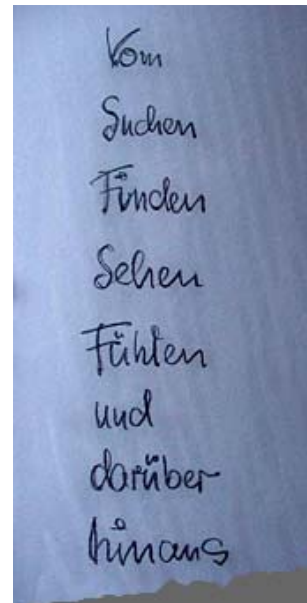 Vom
Suchen
Finden
Sehen
Fühlen
und
darüber
hinaus